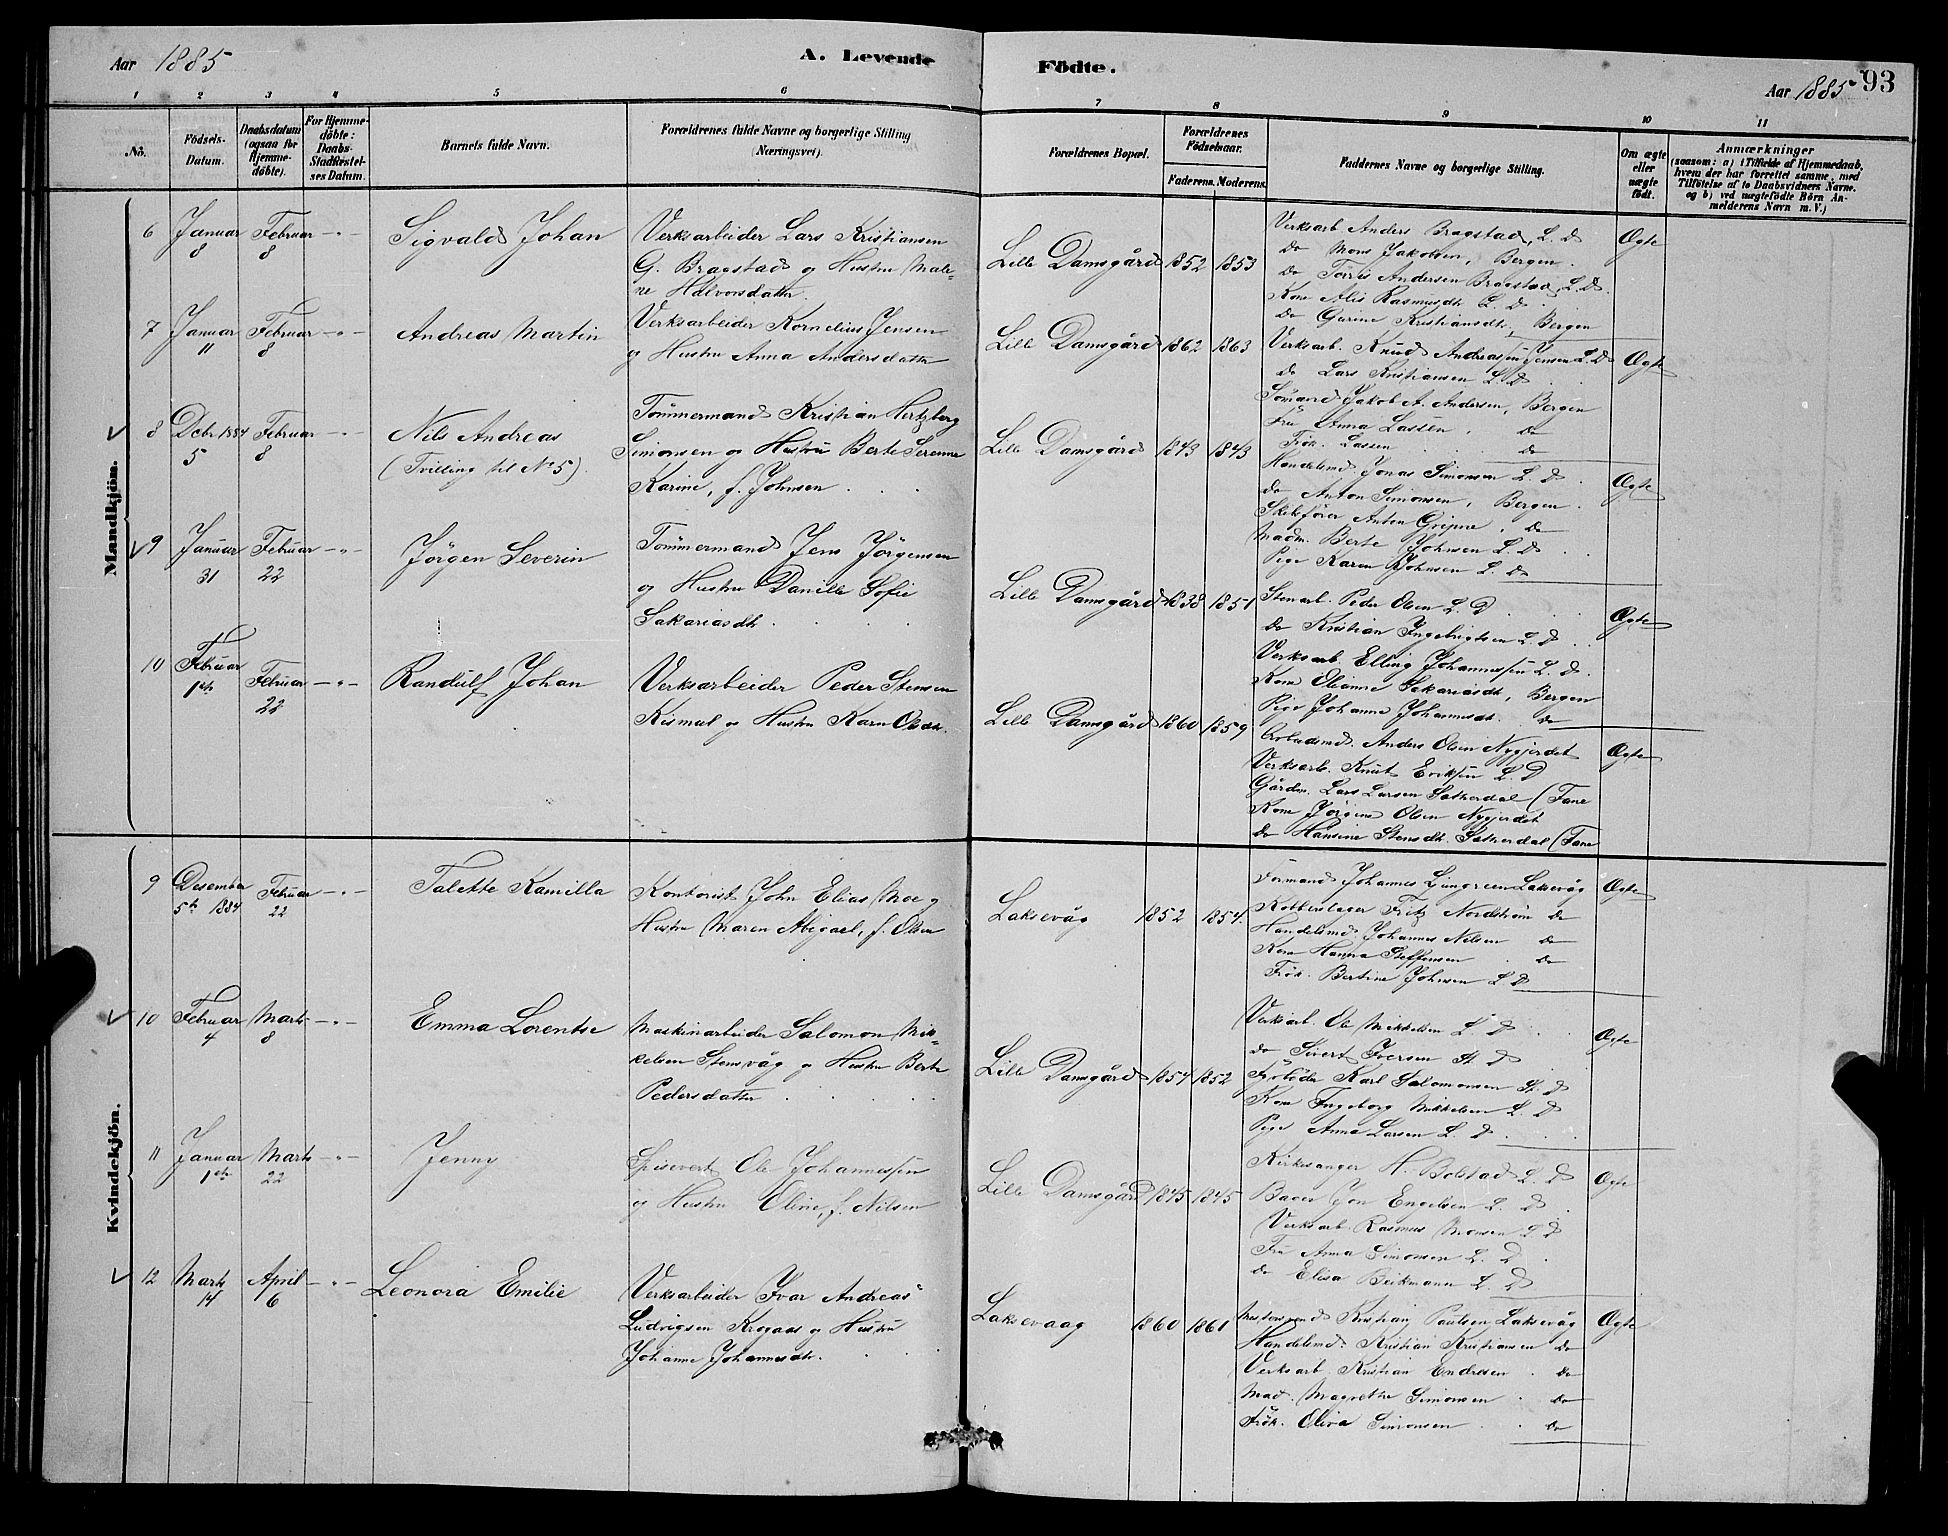 Aar 1885
A. Levende
Födte.
Aar 1885
93
1 2 3 4 5 6 7 8 9 10 11
No.
Födsels-
Datum.
Daabsdatum
(ogsaa for
Hjemme-
döbte).
For Hjemme-
döbte:
Daabs-
Stadfæstel-
ses Datum.
Barnets fulde Navn.
Forældrenes fulde Navne og borgerlige Stilling
(Næringsvei).
Forældrenes Bopæl.
Forældrenes
Födselsaar.
Faderens. Moderens.
Faddernes Navne og borgerlige Stilling.
Om ægte
eller
uægte
født.
Anmærkninger
(saasom: a) i Tilfælde af Hjemmedaab,
hvem der har forrettet samme, med
Tilföielse af to Daabsvidners Navne,
og b) ved uægtefödte Börn An-
melderens Navn m. V.)
Mandkjön.
6 Januar 8 Februar 8 -"-
Sigvald Johan
Verksarbeider Lars Kristiansen
G. Bragstad og Hustru Male-
ne Halvorsdatter.
Lille Damsgård 1852 1853
Verksarb. Anders Bragstad, L. D
do Mons Jakobsen, Bergen.
do Törris Andersen Bragstad, L. D.
Kone Alis Rasmusdtr L. D.
do Garine Kristiansdtr, Bergen
Ægte
7 Januar 11 Februar 8 -"-
Andreas Martin
Verksarbeider Kornelius Jensen
og Hustru Anna Andersdatter
Lille Damsgård 1862 1863
Verksarb. Knud Andreassen Jensen L. D
do Lars Kristiansen L. D
Sömand Jakob A. Andersen, Bergen
Fru Anna Lassen, do
Frök. Lassen do
Ægte
8 Debr 1884 5 Februar 8 -"-
Nils Andreas
(Tvilling til No 5).
Tömmermand Kristian Hertzberg
Simonsen og Hustru Berte Serenne
Karine, f. Johnsen
Lille Damsgård 1843 1843
Handelsmd. Jonas Simonsen L. D.
do Anton Simonsen, Bergen.
Skibsförer Anton Gripne, do
Madm. Berte Johnsen L. D
Pige Karen Johnsen L. D
Ægte
9 Januar 31 Februar 22 -"-
Jörgen Severin
Tömmermand Jens Jörgensen
og Hustru Danille Sofie
Sakariasdtr.
Lille Damsgård 1838 1851
Stenarb. Peder Olsen L. D
do Kristian Ingebrigtsen L. D
Verksarb. Elling Johannessen L. D.
Kone Oleanne Sakariasdtr, Bergen
Pige Johanne Johannesdtr. do
Ægte
10 Februar 1ste Februar 22 -"-
Randulf Johan
Verksarbeider Peder Stensen
Kismul og Hustru Karn Olsdtr.
Lille Damsgård 1860 1859
Arbeidsmd. Anders Olsen Nygjerdet
Verksarb. Knut Eriksen L. D
Gårdm. Lars Larsen Sætherdal (Fane
Kone Jörgine Olsen Nygjerdet
do Hansine Stensdtr. Sætherdal (Fane
Ægte
Kvindekjön.
9 Desember 5te 1884 Februar 22 -"-
Talette Kamilla
Kontorist John Elias Moe og
Hustru Maren Abigael, f. Olsen
Laksevåg 1852 1854.
Formand Johannes Ljungreen Laksevåg
Kobberslager Fritz Nordström do
Handelsmd. Johannes Nilsen do
Kone Hanna Steffensen do
Frök. Bertine Johnsen L. D
Ægte
10 Februar 4 Marts 8 -"-
Emma Lorentse
Maskinarbeider Salomon Mik-
kelsen Stensvåg og Hustru Berte
Pedersdatter
Lille Damsgård 1854 1852
Verksarb. Ole Mikkelsen L. D
do Sivert Iversen St. D
Karl Salomonsen St. D
Kone Ingeborg Mikkelsen L. D
Pige Anna Larsen L. D
Ægte
11 Januar 1ste Marts 22 -"-
Jenny
Spisevert Ole Johannessen
og Hustru Oline, f. Nilsen
Lille Damsgård 1845 1845
Kirkesanger H. Bolstad L. D
Bager Jon Engelsen L. D.
Verksarb. Rasmus Monsen L D
Fru Anna Simonsen L. D.
do Elisa Beikmann L. D
Ægte
12 Marts 14 April 6 -"-
Leonora Emilie
Verksarbeider Ivar Andreas
Ludvigsen Krogaas og Hustru
Johanne Johannesdtr.
Laksevaag 1860 1861
Kristian Paulsen Laksevåg
Handelsmd. Kristian Kristiansen do
Verksarb. Kristian Endresen do
Mad. Magrethe Simonsen do
Frök. Oliva Simonsen do
Ægte